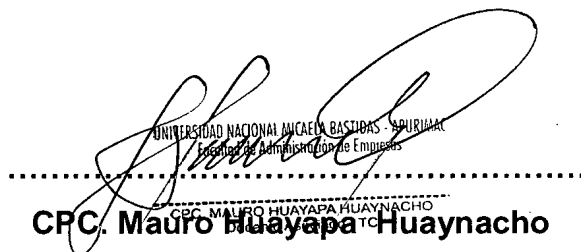 UNIVERSIDAD NACIONAL MICAELA BASTIDAS - APURIMAC
Facultad de Administración de Empresas
CPC. MAURO HUAYAPA HUAYNACHO
TC
CPC. Mauro Huayapa Huaynacho